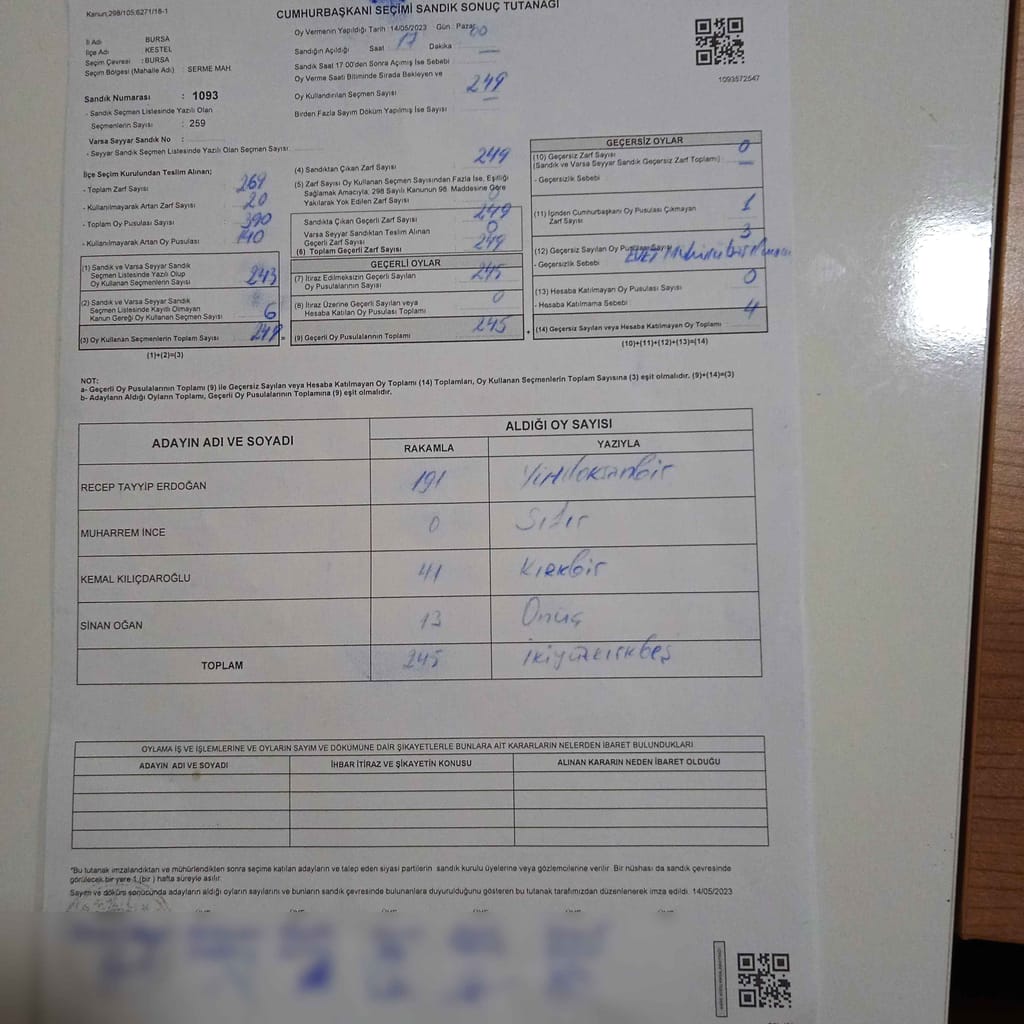 Kanun:298/105;6271/18-1
CUMHURBAŞKANI SEÇİMİ SANDIK SONUÇ TUTANAĞI
İl Adı BURSA
İlçe Adı KESTEL
Seçim Çevresi : BURSA
Seçim Bölgesi (Mahalle Adı) : SERME MAH.
Sandık Numarası : 1093
- Sandık Seçmen Listesinde Yazılı Olan
Seçmenlerin Sayısı : 259
Varsa Seyyar Sandık No :
- Seyyar Sandık Seçmen Listesinde Yazılı Olan Seçmen Sayısı
Oy Vermenin Yapıldığı Tarih : 14/05/2023 Gün : Pazar
Sandığın Açıldığı Saat : 17 Dakika : 00
Sandık Saat 17.00'den Sonra Açımış İse Sebebi
Oy Verme Saati Bitiminde Sırada Bekleyen ve
Oy Kullandırılan Seçmen Sayısı 249
Birden Fazla Sayım Döküm Yapılmış İse Sayısı
1093572547
İlçe Seçim Kurulundan Teslim Alınan;
- Toplam Zarf Sayısı 269
- Kullanılmayarak Artan Zarf Sayısı 20
- Toplam Oy Pusulası Sayısı 390
- Kullanılmayarak Artan Oy Pusulası 140
(1) Sandık ve Varsa Seyyar Sandık
Seçmen Listesinde Yazılı Olup
Oy Kullanan Seçmenlerin Sayısı 243
(2) Sandık ve Varsa Seyyar Sandık
Seçmen Listesinde Kayıtlı Olmayan
Kanun Gereği Oy Kullanan Seçmen Sayısı 6
(3) Oy Kullanan Seçmenlerin Toplam Sayısı 249 =
(1)+(2)=(3)
(4) Sandıktan Çıkan Zarf Sayısı 249
(5) Zarf Sayısı Oy Kullanan Seçmen Sayısından Fazla İse, Eşitliği
Sağlamak Amacıyla; 298 Sayılı Kanunun 98. Maddesine Göre
Yakılarak Yok Edilen Zarf Sayısı 0
Sandıkta Çıkan Geçerli Zarf Sayısı 249
Varsa Seyyar Sandıktan Teslim Alınan
Geçerli Zarf Sayısı 0
(6) Toplam Geçerli Zarf Sayısı 249
GEÇERLİ OYLAR
(7) İtiraz Edilmeksizin Geçerli Sayılan
Oy Pusulalarının Sayısı 245
(8) İtiraz Üzerine Geçerli Sayılan veya
Hesaba Katılan Oy Pusulası Toplamı 0
(9) Geçerli Oy Pusulalarının Toplamı 245 +
GEÇERSİZ OYLAR
(10) Geçersiz Zarf Sayısı 0
(Sandık ve Varsa Seyyar Sandık Geçersiz Zarf Toplamı)
- Geçersizlik Sebebi
(11) İçinden Cumhurbaşkanı Oy Pusulası Çıkmayan
Zarf Sayısı 1
(12) Geçersiz Sayılan Oy Pusulası Sayısı 3
- Geçersizlik Sebebi EVET
(13) Hesaba Katılmayan Oy Pusulası Sayısı 0
- Hesaba Katılmama Sebebi
(14) Geçersiz Sayılan veya Hesaba Katılmayan Oy Toplamı 4
(10)+(11)+(12)+(13)=(14)
NOT:
a- Geçerli Oy Pusulalarının Toplamı (9) ile Geçersiz Sayılan veya Hesaba Katılmayan Oy Toplamı (14) Toplamları, Oy Kullanan Seçmenlerin Toplam Sayısına (3) eşit olmalıdır. (9)+(14)=(3)
b- Adayların Aldığı Oyların Toplamı, Geçerli Oy Pusulalarının Toplamına (9) eşit olmalıdır.
ADAYIN ADI VE SOYADI ALDIĞI OY SAYISI
RAKAMLA YAZIYLA
RECEP TAYYİP ERDOĞAN 191 Yüzdoksanbir
MUHARREM İNCE 0 Sıfır
KEMAL KILIÇDAROĞLU 41 Kırkbir
SİNAN OĞAN 13 Onüç
TOPLAM 245 ikiyüzkırkbeş
OYLAMA İŞ VE İŞLEMLERİNE VE OYLARIN SAYIM VE DÖKÜMÜNE DAİR ŞİKAYETLERLE BUNLARA AİT KARARLARIN NELERDEN İBARET BULUNDUKLARI
ADAYIN ADI VE SOYADI İHBAR İTİRAZ VE ŞİKAYETİN KONUSU ALINAN KARARIN NEDEN İBARET OLDUĞU
*Bu tutanak imzalandıktan ve mühürlendikten sonra seçime katılan adayların ve talep eden siyasi partilerin sandık kurulu üyelerine veya gözlemcilerine verilir. Bir nüshası da sandık çevresinde
görülecek bir yere 1 (bir) hafta süreyle asılır.
Sayım ve döküm sonucunda adayların aldığı oyların sayılarını ve bunların sandık çevresinde bulunanlara duyurulduğunu gösteren bu tutanak tarafımızdan düzenlenerek imza edildi. 14/05/2023